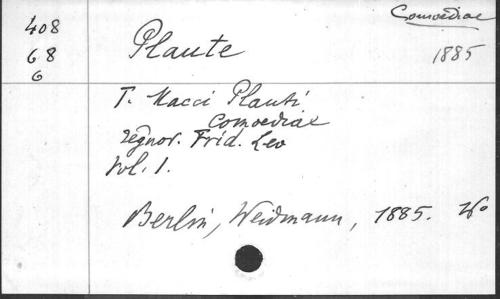 Comoediae
408
68
6
Plaute
1885
T. Macci Plauti
Comoediae
regnov. Frid. Leo
Vol. 1.
Berlin, Weidmann, 1885.